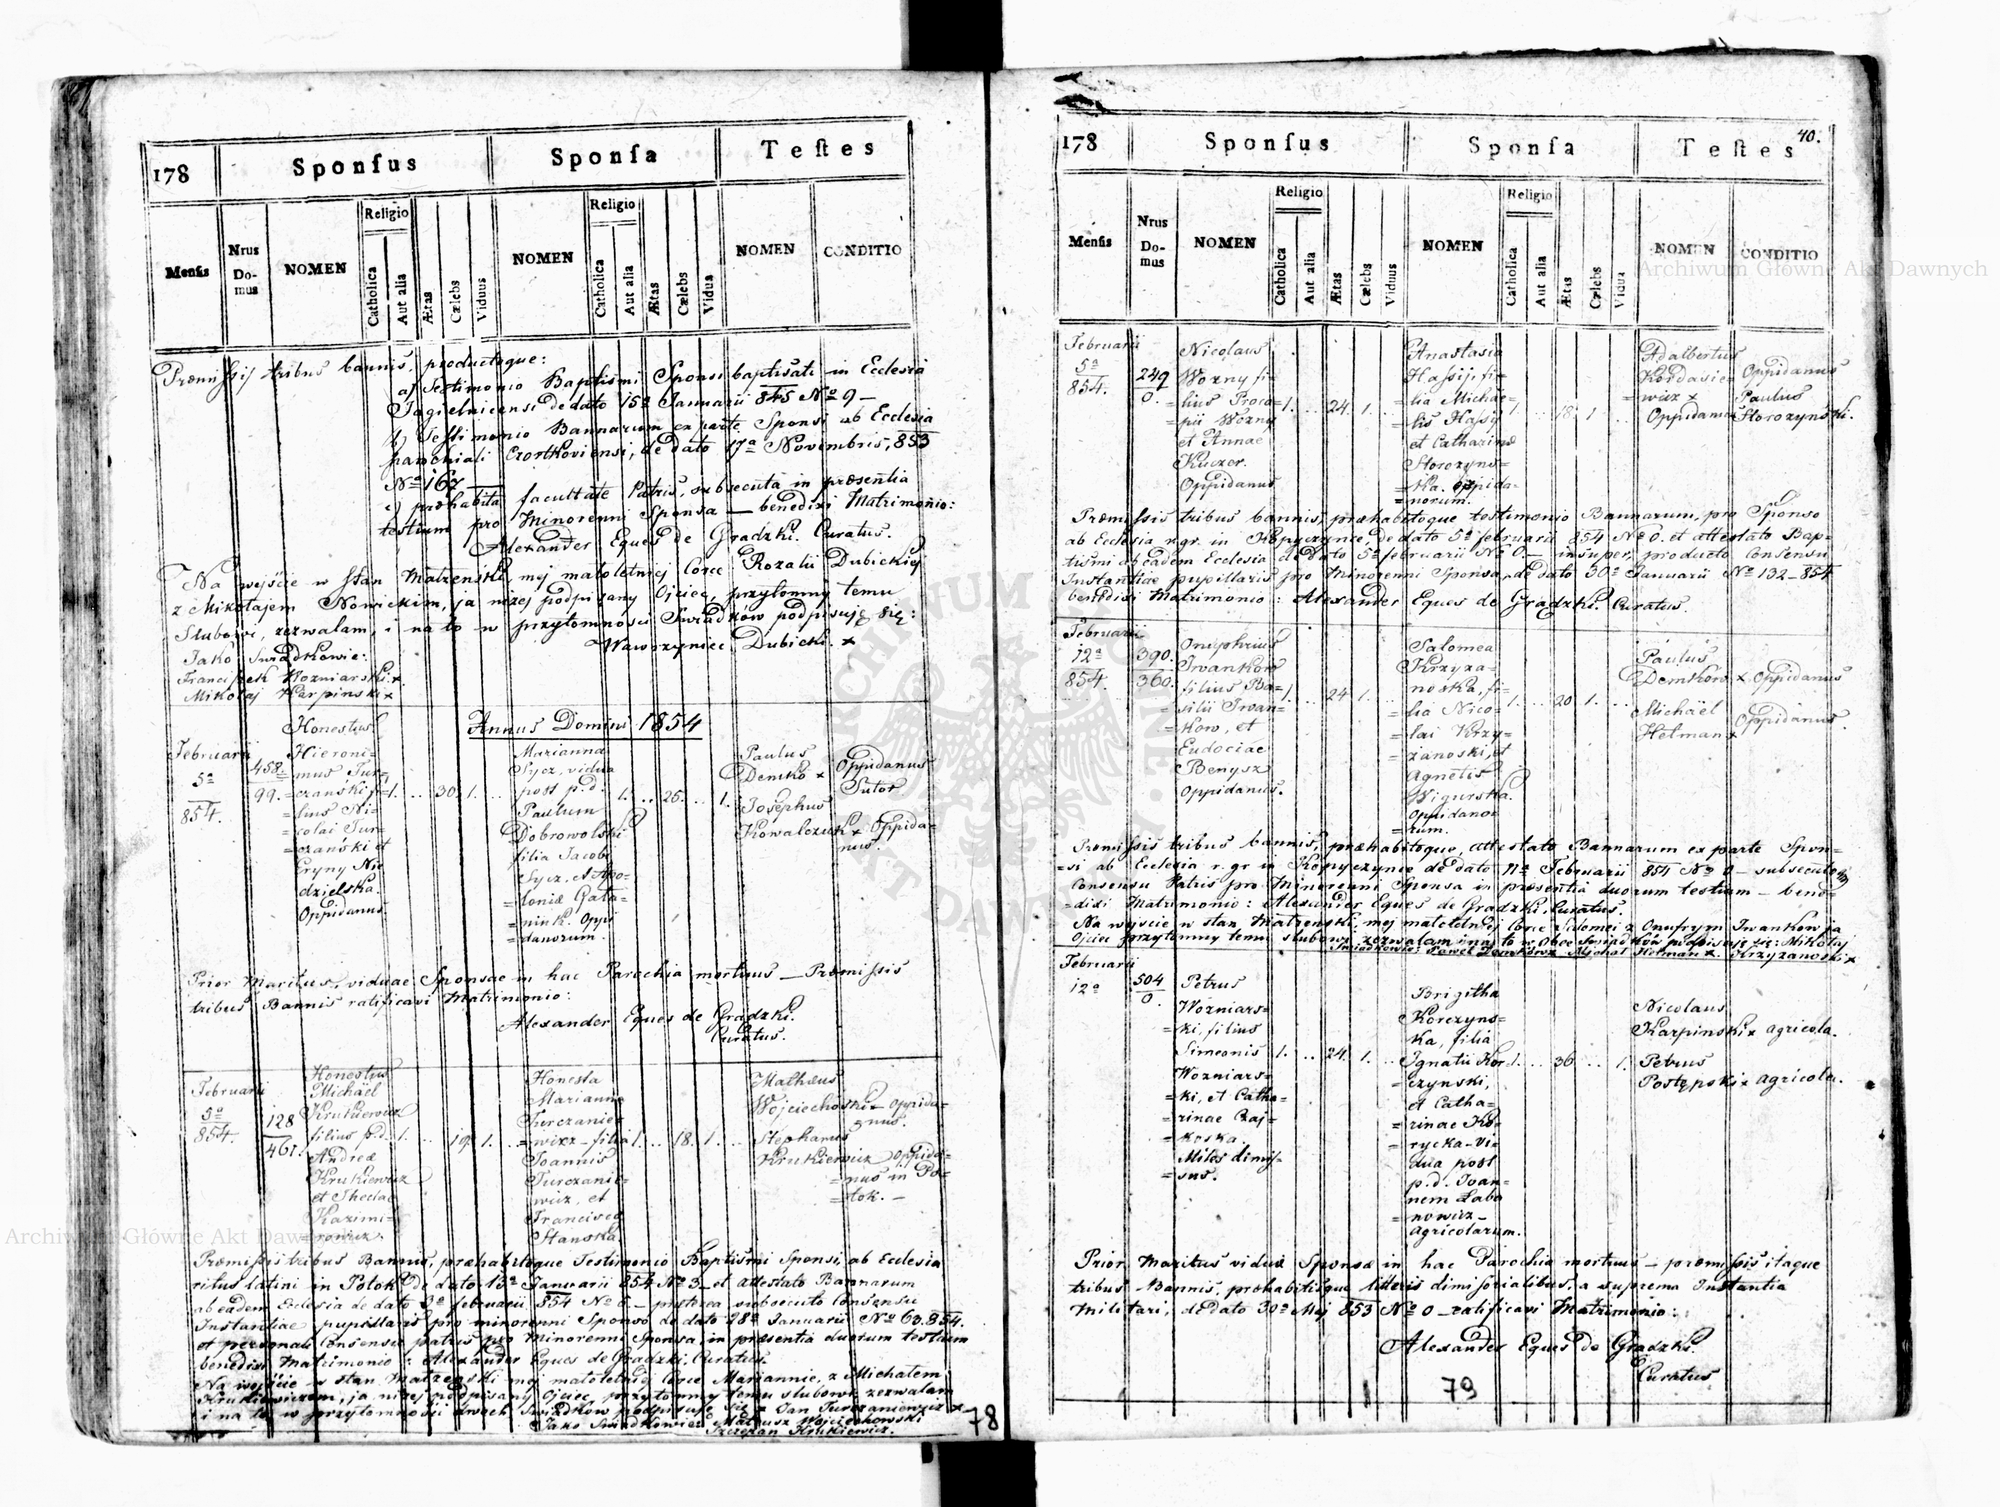 178 Sponſus Sponſa Teſtes
Menſis Nrus Domus NOMEN Religio Catholica Aut alia Ætas Cælebs Viduus NOMEN Religio Catholica Aut alia Ætas Cælebs Vidua NOMEN CONDITIO
Præmissis tribus bannis, productoque:
a) Testimonio Baptismi Sponsi baptisati in Ecclesia
Jagielnicensi de dato 15a Januarii 845 No 9 –
b) Testimonio Bannarum ex parte Sponsi ab Ecclesia
parochiali Czortkoviensi, de dato 17a Novembris, 853
No 167
c) præhabita facultate Patris, subsecuta in præsentia
testium pro Minorenni Sponsa – benedixi Matrimonio:
Alexander Eques de Gradzki. Curatus.
Na wejście w stan Małżeński, mej małoletniej Córce Rozalii Dubickiej
z Mikołajem Nowickim, ja niżej podpisany Ojciec, przytomny temu
Slubowi, zezwalam, i na to w przytomności Swiadków podpisuję się:
Wawrzyniec Dubicki. x
Jako Swiadkowie:
Franciszek Wozniarski. x
Mikołaj Karpinski x
Annus Domini 1854
Februarii
5a
854.
458.
99.
Honestus
Hieroni=
mus Tur=
czanski fi=
=lius Ni=
=colai Tur=
=czanski et
Eryny Nie
dzielska.
Oppidanus
1. .. 30. 1. ..
Marianna
Sycz, vidua
post p. d.
Paulum
Dobrowolski
filia Jacobi
Sycz, et Apo=
=loniæ Gata=
=niuk. Oppi
=danorum.
1. .. 26. .. 1.
Paulus
Demko x Oppidanus
Sutor
Josephus
Kowalczuk x Oppida=
nus.
Prior Maritus, viduae Sponsae in hac Parochia mortuus – Præmissis
tribus Bannis ratificavi Matrimonio:
Alexander Eques de Gradzki.
Curatus.
Februarii
5a
854.
128
461.
Honestus
Michäel
Krukiewicz
filius p. d.
Andreæ
Krukiewicz
et Theclae
Kazimi=
=rowicz.
1. .. 19. 1. ..
Honesta
Marianna
Turczanie=
=wicz – filia
Joannis
Turczanie=
wicz, et
Francisca
Stanska.
1. .. 18. 1. ..
Mathæus
Wojciechowski – oppida=
=nus.
Stephanus
Krukiewicz oppida=
=nus in Po=
=tok. –
Præmissis tribus Bannis, præhabitoque Testimonio Baptismi Sponsi, ab Ecclesia
ritus latini in Potok de dato 13a Januarii 854 No 3 – et attestato Bannarum
ab eadem Ecclesia de dato 3a februarii 854 No 6 – præterea subsecuto Consensu
Instantiae pupillaris pro minorenni Sponso de dato 28a Januarii No 63. 854.
et personali Consensu patris pro Minorenni Sponsa, in præsentia duorum testium
benedixi Matrimonio: Alexander Eques de Gradzki, Curatus.
Na wejście w stan Małżeński mej małoletniej Córce Mariannie, z Michałem
Krukiewiczem, ja niżej podpisany Ojciec, przytomny temu slubowi, zezwalam
i na to w przytomności dwóch Swiadków podpisuję się x Jan Turczaniewicz x
Jako Swiadkowie: Mateusz Wojciechowski
Szczepan Krukiewicz.
78
40.
178 Sponſus Sponſa Teſtes
Menſis Nrus Domus NOMEN Religio Catholica Aut alia Ætas Cælebs Viduus NOMEN Religio Catholica Aut alia Ætas Cælebs Vidua NOMEN CONDITIO
Februarii
5a
854.
249
0.
Nicolaus
Wozny fi=
=lius Proco=
=pii Wozny
et Annae
Kuczer.
Oppidanus
1. .. 24. 1. ..
Anastasia
Hassij, fi=
lia Michae=
lis Hassij
et Catharinæ
Storozyns=
=ka. oppida=
=norum.
1. .. 18. 1 ..
Adalbertus
Kordasie= Oppidanus
=wicz x Paulus
Oppidanus Storozynski.
Præmissis tribus bannis, præhabitoque testimonio Bannarum, pro Sponso
ab Ecclesia r. gr. in Kopyczynce, de dato 5a februarii 854 No 0. et attestato Bap=
tismi ab eadem Ecclesia de Dato 5a februarii No 0. – insuper, producto Consensu
Instantiae pupillaris pro Minorenni Sponsa, de dato 30a Januarii No 132 – 854
benedixi Matrimonio: Alexander Eques de Gradzki. Curatus.
Februarii
12a
854.
390.
360.
Onuphrius
Iwankow
filius Ba=
=silii Iwan=
=kow, et
Eudociae
Benysz
Oppidanus.
1. .. 24 1. ..
Salomea
Krzyza=
noska, fi=
lia Nico=
lai Krzy=
=zanoski, et
Agnetis
Wigurska.
Oppidano=
=rum.
1. .. 20 1. ..
Paulus
Demkow x Oppidanus
Michäel Oppidanus
Helman x
Præmissis tribus bannis, præhabitoque, attestato Bannarum ex parte Spon=
=si ab Ecclesia r. gr. in Kopyczynce de dato 11a Februarii 854 No 0 – subsecuto
Consensu Patris pro Minorenni Sponsa in præsentia duorum testium – bene=
=dixi Matrimonio: Alexander Eques de Gradzki, Curatus.
Na wejście w stan Małżenski, mej małoletniej Córce Salomei z Onufrym Iwankow ja
Ojciec przytomny temu slubowi zezwalam i na to w obec Swiadków podpisuję się: Mikołaj
Swiadkowie: Paweł Demkow x Michał Helman x. Krzyzanoski x
Februarii
12a
504
0.
Petrus
Wozniars=
=ki, filius
Simeonis
Wozniars=
=ki, et Catha=
=rinae Czaj=
=koska.
Miles dimis=
=sus.
1. .. 24. 1. ..
Brigitha
Korczyns=
ka, filia
Ignatii Kor=
=czynski,
et Catha=
=rinae Ko=
=rycka – vi=
dua post
p. d. Joan=
nem Łaba
=nowicz –
Agricolarum.
1. .. 36 .. 1.
Nicolaus
Karpinski x agricola.
Petrus
Postępski x agricola.
Prior Maritus viduæ Sponsæ in hac Parochia mortuus – præmissis itaque
tribus Bannis, prohabitisque litteris dimissorialibus, a suprema Instantia
Militari, de dato 30a Maj 853 No 0 – ratificavi Matrimonio:
Alexander Eques de Gradzki.
Curatus
79
Archiwum Główne Akt Dawnych
Archiwum Główne Akt Dawnych
ARCHIWUM GŁÓWNE AKT DAWNYCH